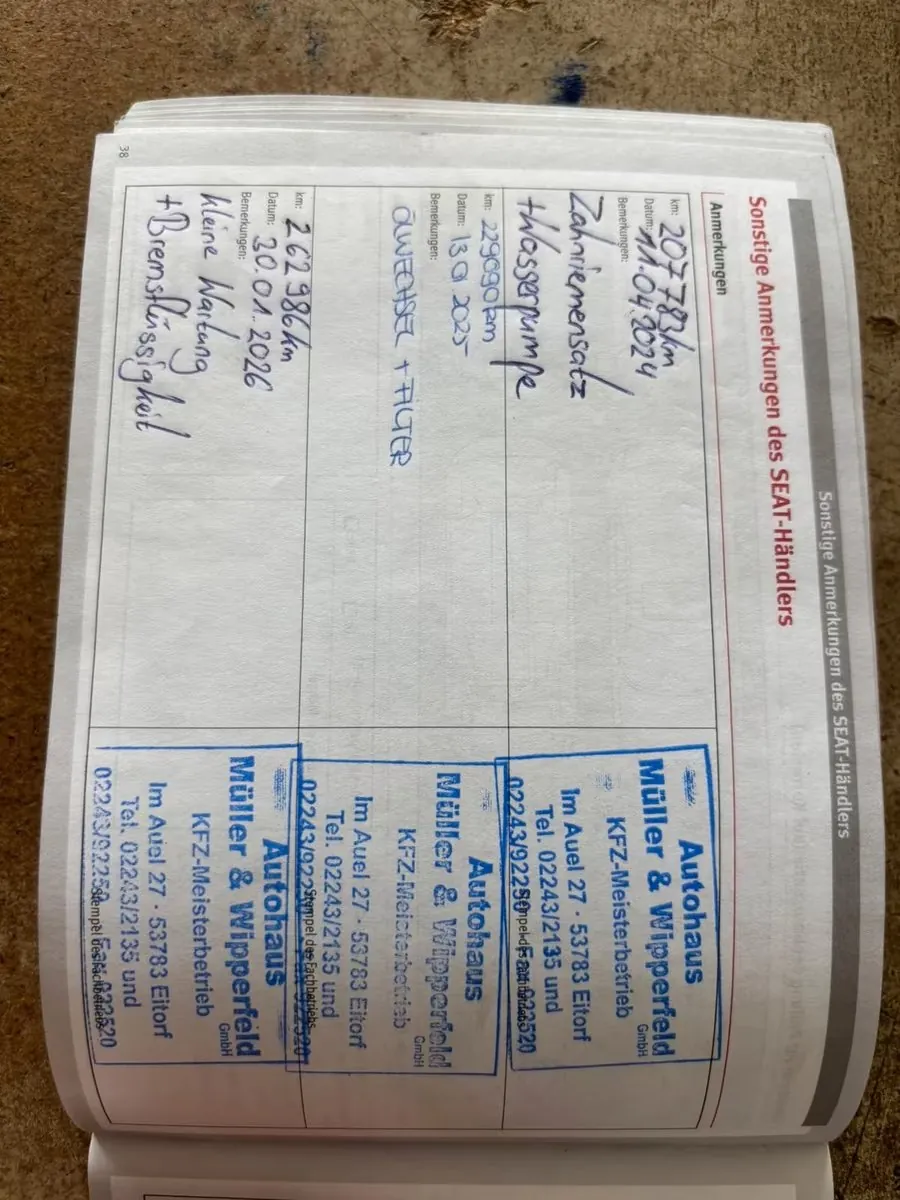 Sonstige Anmerkungen des SEAT-Händlers
Sonstige Anmerkungen des SEAT-Händlers
Anmerkungen
km: 207783km
Datum: 11.04.2024
Bemerkungen:
Zahnriemensatz
+Wasserpumpe
Autohaus
Müller & Wipperfeld
GmbH
KFZ-Meisterbetrieb
Im Auel 27 · 53783 Eitorf
Tel. 02243/2135 und
02243/92250
km: 229090km
Datum: 13 01 2025
Bemerkungen:
ÖLWECHSEL + FILTER
Autohaus
Müller & Wipperfeld
GmbH
KFZ-Meisterbetrieb
Im Auel 27 · 53783 Eitorf
Tel. 02243/2135 und
Stempel des Fachbetriebs
km: 262986km
Datum: 30.01.2026
Bemerkungen:
kleine Wartung
+Bremsflüssigkeit
Autohaus
Müller & Wipperfeld
GmbH
KFZ-Meisterbetrieb
Im Auel 27 · 53783 Eitorf
Tel. 02243/2135 und
Stempel des Fachbetriebs
38